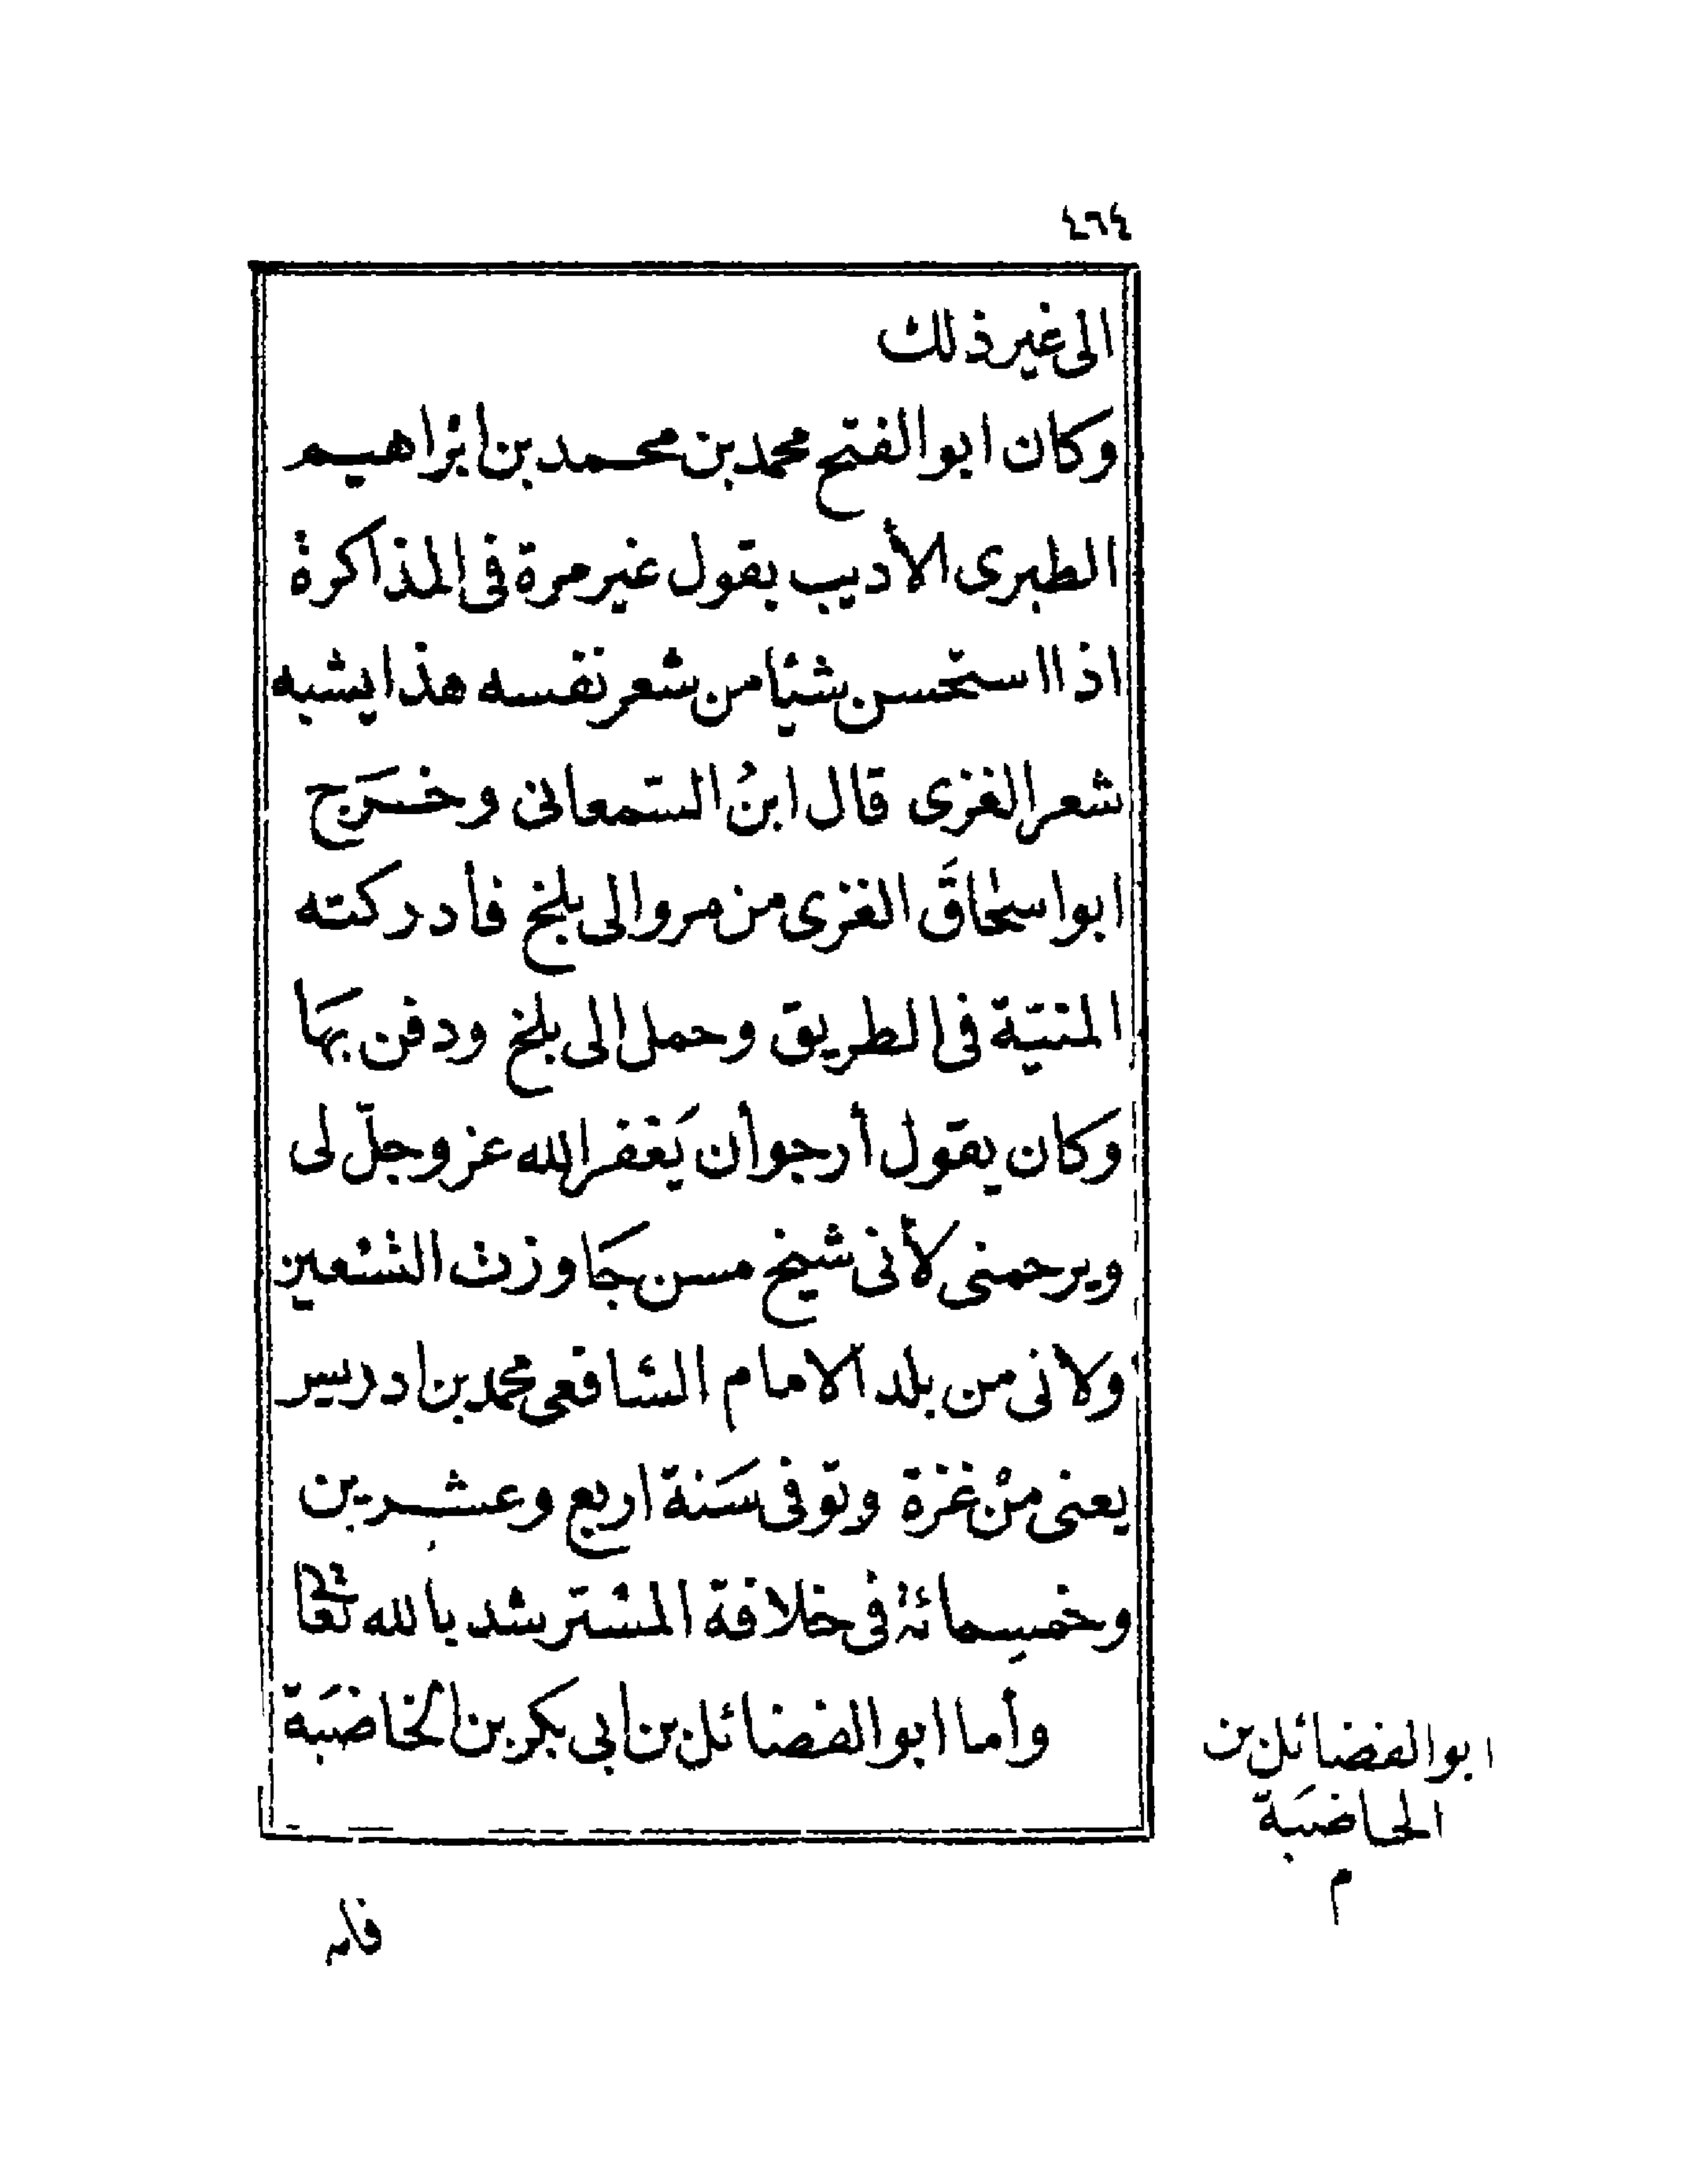 ٤٦٤
الى غير ذلك
وكان ابو الفتح محمد بن محمد بن ابراهيم
الطبرى الأديب يقول غير مرة فى المذاكرة
اذا استحسن شيئا من شعر نفسه هذا يشبه
شعر الغزى قال ابنُ السّمعانى وخرَج
ابو اسحاقَ الغزى من مرو الى بلخ فأدركته
المنيّة فى الطريق وحمل الى بلخ ودفن بهَا
وكان يقول أرجو أن يَغفر الله عز وجلّ لى
ويرحمنى لأنى شيخ مسن جَاوزت التسْعين
ولانى من بلد الامام الشافعى محمد بن ادريس
يعنى منْ غزة وتوفى سَنة اربع وعشرين
وخمسِمائة فى خلافة المسْترشد بالله تعَالى
وأما ابو الفضائل بن ابى بكر بن الخاضبَة
ابو الفضائل بن
الخاضبَة
م
فانه